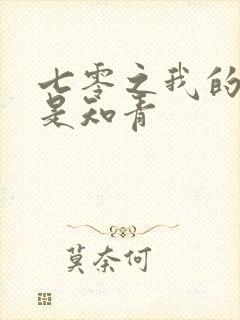 七零之我的
是知青
莫奈何